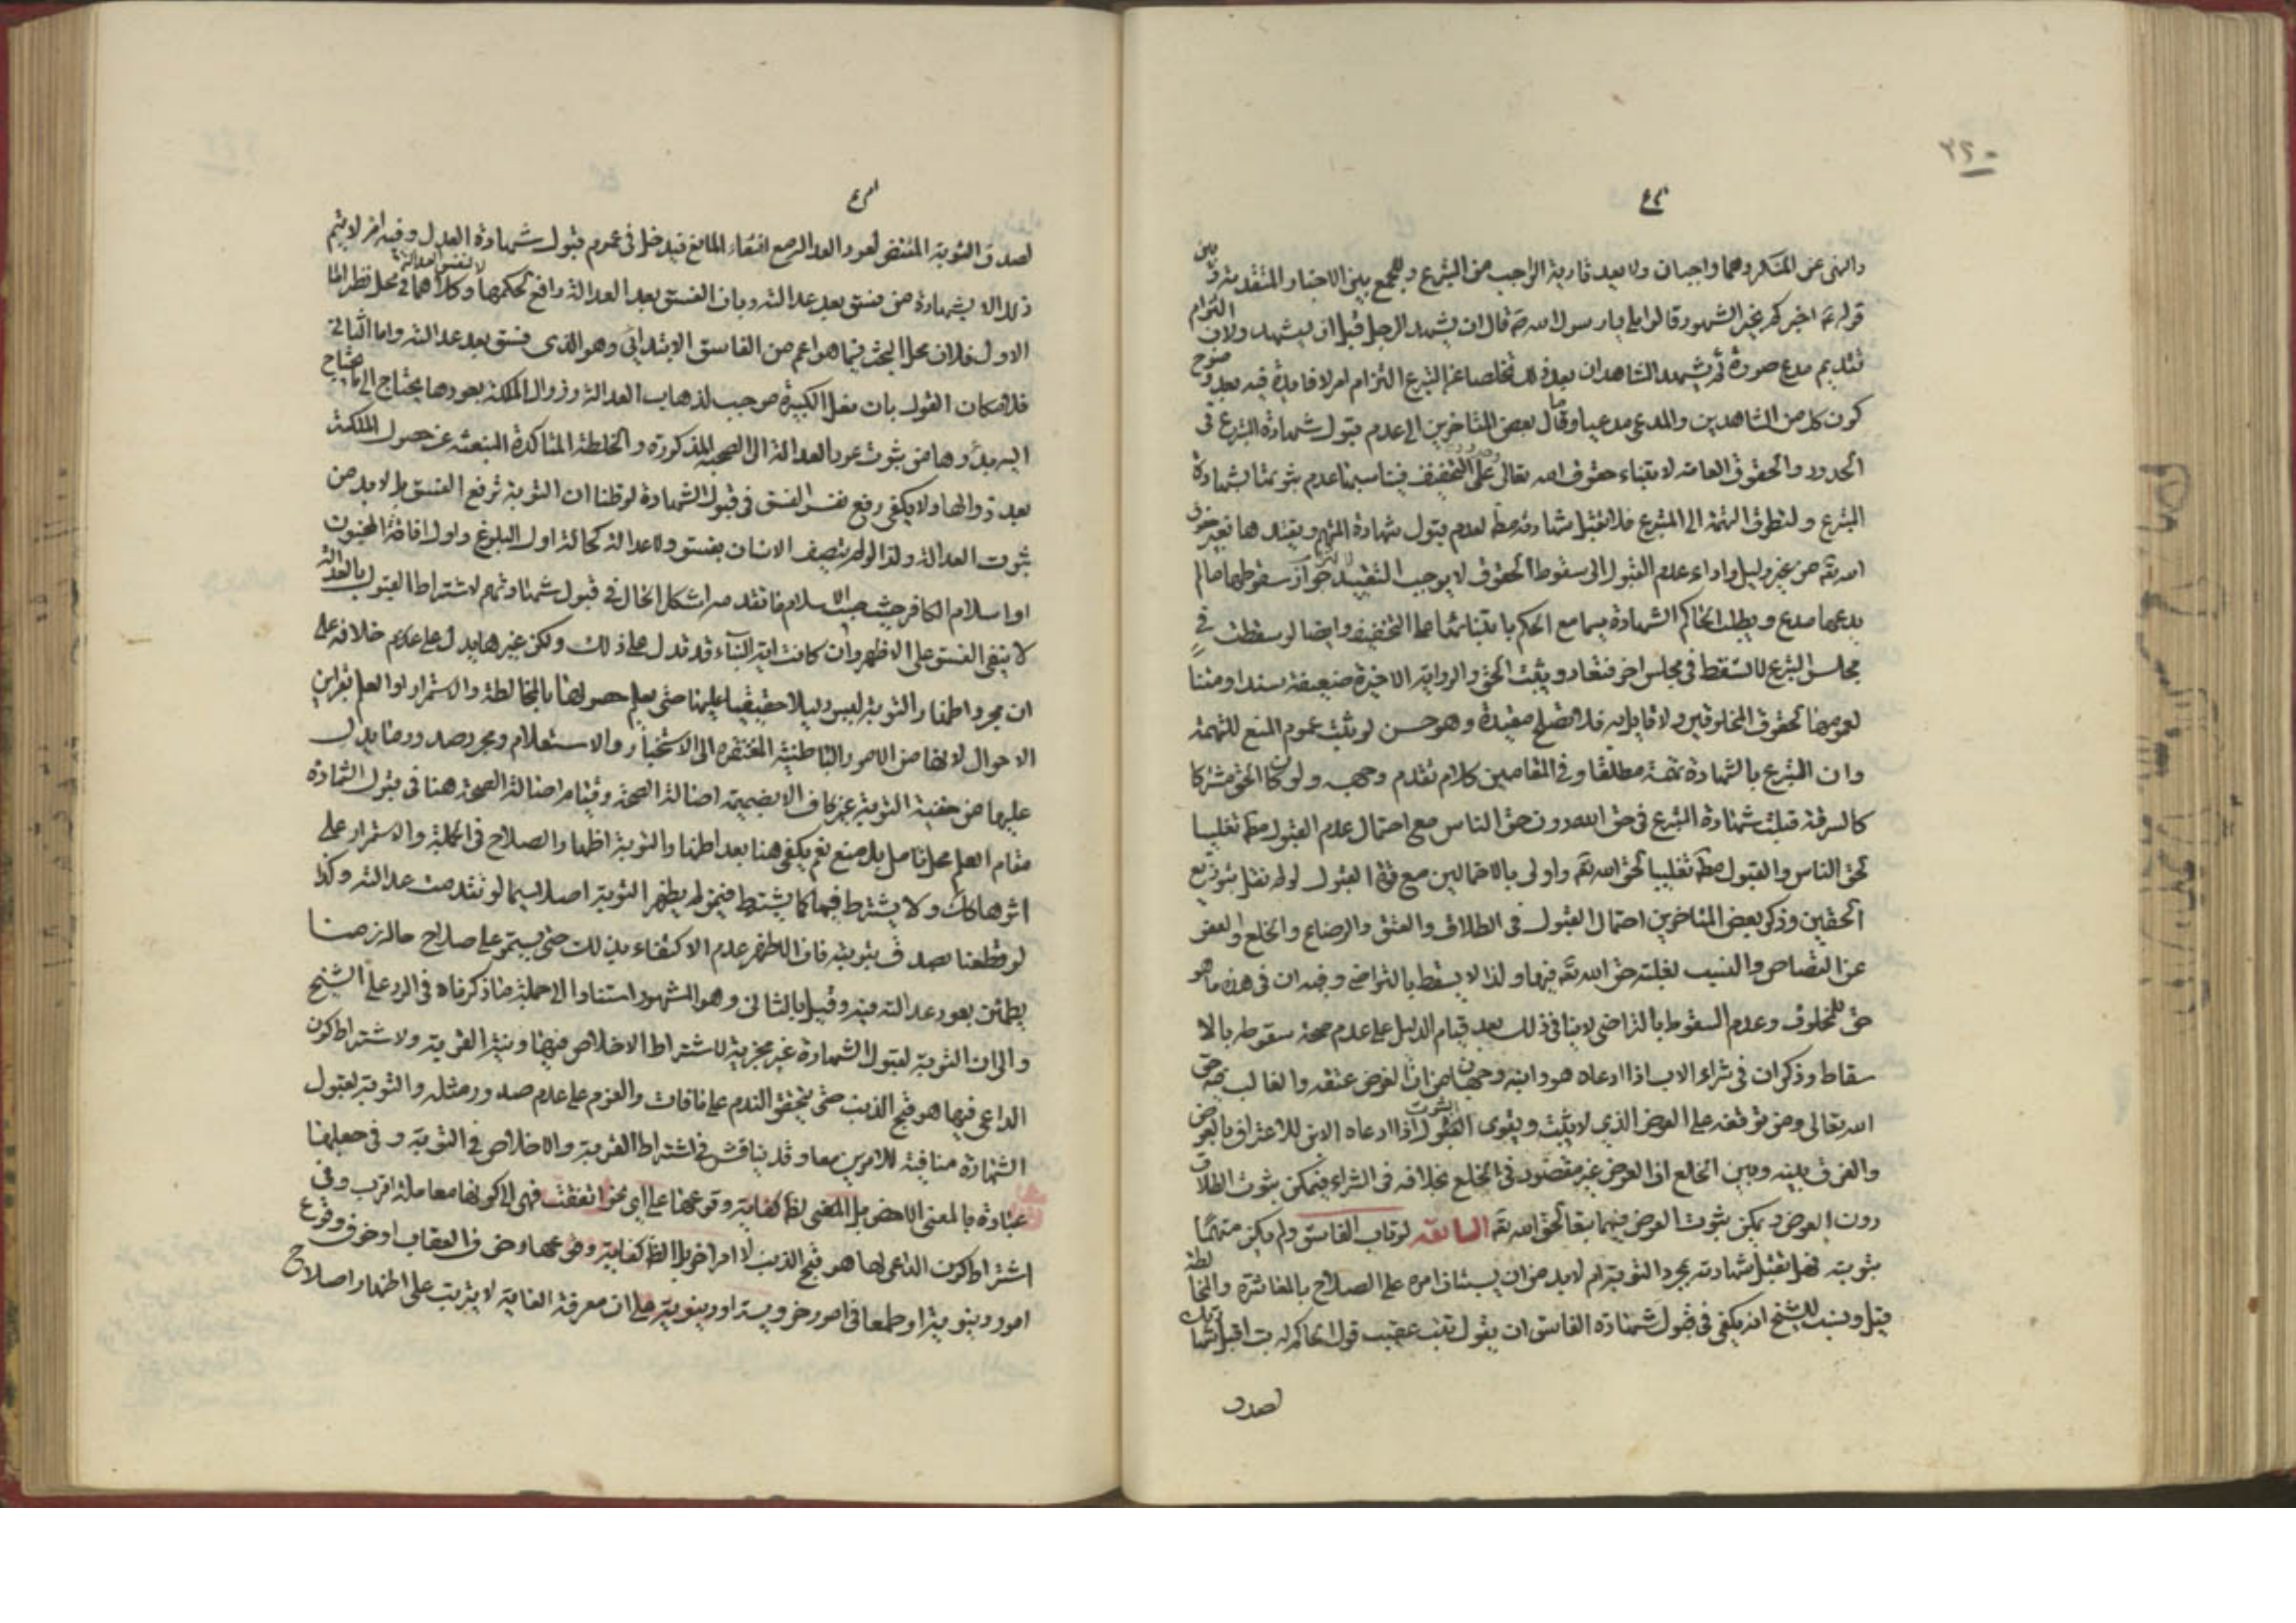 ٣٢٠
والنهى عن المنكر وهما واجبان ولا بعد تادية الواجب من التبرع وللجمع بين الاخبار المتقدمة وبين
قوله ع اخبركم بخير الشهود قالوا بلى يا رسول الله ص قال ان يشهد الرجل قبل ان يستشهد ولان التزام
تقديم مدع صورة ثم يشهد الشاهدان بعد ذلك تخلصا عن التبرع التزام امر لا فايدة فيه بعد وضوح
كون كل من الشاهدين والمدعى مدعيا وقال بعض المتاخرين الى عدم قبول شهادة التبرع فى
الحدود والحقوق العامة لابتناء حقوق الله تعالى على التخفيف فيناسبها عدم ثبوتها بشهادة
المتبرع ولتطرق التهمة الى المتبرع فلا تقبل شهادته مط لعدم قبول شهادة المتهم وتقييدها بغير حق
الله تع من غير دليل واداء عدم القبول الى سقوط الحقوق لا يوجب التقييد لجواز سقوطها ما لم
يدعها مدع ويطلب الحاكم الشهادة سيما مع الحكم بابتنائها على التخفيف وايضا لو سقطت فى
مجلس التبرع لا تسقط فى مجلس اخر فتعاد ويثبت الحق والرواية الاخيرة ضعيفة سندا ومتنا
لعمومها لحقوق المخلوقين ولا قايل به فلا تصلح مقيدة وهو حسن لو ثبت عموم المنع للتهمة
وان التبرع بالشهادة تهمة مطلقا وفى المقامين كلام تقدم وجهه ولو كان الحق مشتركا
كالسرقة قبلت شهادة المتبرع فى حق الله دون حق الناس مع احتمال عدم القبول مط تغليبا
لحق الناس والقبول مط تغليبا لحق الله تع واولى بالاحتمالين مع قوة القبول لو لم نقل بتوزيع
الحقين وذكر بعض المتاخرين احتمال القبول فى الطلاق والعتق والرضاع والخلع والعفو
عن القصاص والنسب لغلبة حق الله تع فيها ولذا لا يسقط بالتراضى وفيه ان فى هذه ما هو
حق للمخلوق وعدم السقوط بالتراضى لا ينافى ذلك بعد قيام الدليل على عدم صحة سقوطه بالا
سقاط وذكر ان فى شراء الاب اذا ادعاه هو وابنه وجهان من ان الغرض عتقه والغالب فيه حق
الله تعالى ومن توقفه على العوض الذى لا يثبت ويقوى الثبوت اذا ادعاه الابن للاعتراف بالعوض
والفرق بينه وبين الخلع ان العوض غير مقصود فى الخلع بخلافه فى الشراء فيمكن ثبوت الطلاق
دون العوض ويمكن ثبوت العوض فيهما تبعا لحق الله تع السابعة لو تاب الفاسق ولم يكن متهما
بتوبته فهل تقبل شهادته بمجرد التوبة ام لا بد من ان يستبان امره على الصلاح بالمعاشرة والمخالطة
قيل ونسب للشيخ انه يكفى فى قبول شهادة الفاسق ان يقول تبت عقيب قول الحاكم له تب اقبل شهادتك
لصدق
لصدق التوبة المقتضى لعود العدالة مع انتفاء المانع فيدخل فى عموم قبول شهادة العدل وفيه انه لا يتم
ذلك الا بشهادة من فسق بعد عدالته وبان الفسق بعد العدالة رافع لحكمها لا لنفس العدالة وكلاهما فى محل نظر اما
الاول فلان محل البحث فيما هو اعم من الفاسق الابتدائى وهو الذى فسق بعد عدالته واما الثانى
فلامكان القول بان فعل الكبيرة موجب لذهاب العدالة وزوال الملكة بعودها يحتاج الى ما يحتاج
اليه بدؤها من ثبوت عود العدالة الى الصحبة المذكورة والخلطة المتاكدة المنبعثة عن حصول الملكة
بعد زوالها ولا يكفى رفع نفس الفسق فى قبول الشهادة لو ظننا ان التوبة ترفع الفسق بل لا بد من
ثبوت العدالة ولذا لو لم يتصف الانسان بفسق ولا عدالة كحالة اول البلوغ واول افاقة المجنون
او اسلام الكافر حيث يجب الاسلام ما تقدمه اشكل الحال فى قبول شهادتهم لاشتراط القبول بالعدالة
لا بنفى الفسق على الاظهر وان كانت اية النباء قد تدل على ذلك ولكن غيرها يدل على عدم خلافه على
ان مجرد اظهار التوبة ليس دليلا حقيقيا عليها حتى يعلم حصولها بالمخالطة والاستمرار او العلم بقراين
الاحوال لانها من الامور الباطنية المفتقرة الى الاختبار والاستعلام ومجرد صدور ما يدل
عليها من حقيقة التوبة غير كاف الا بضميمة اصالة الصحة وقيام اصالة الصحة هنا فى قبول الشهادة
مقام العلم محل تامل بل منع نعم يكفى هنا بعد اظهار التوبة اظهار الصلاح فى الجملة والاستمرار على
اثرها كك ولا يشترط فيها كما يشترط فيمن لم يظهر التوبة اصلا سيما لو تقدمت عدالته وكذا
لو قطعنا بصدق توبته فان الاظهر عدم الاكتفاء بذلك حتى يستمر على صلاح حاله زمنا
يطمئن بعود عدالته فيه وقيل بالثانى وهو المشهور استنادا الى جملة ما ذكرناه فى الرد على الشيخ
والى ان التوبة لقبول الشهادة غير مجزية لاشتراط الاخلاص فيها ونية القربة ولاشتراط كون
الداعى فيها هو قبح الذنب حتى يتحقق الندم على ما فات والعزم على عدم صدور مثله والتوبة لقبول
الشهادة منافية للامرين معا وقد يناقش فى اشتراط القربة والاخلاص فى التوبة وفى جعلها
عبادة بالمعنى الاخص بل المقتضى لظ كفاية وقوعها على اى نحو اتفقت فهى الى كونها معاملة اقرب وفى
اشتراط كون الداعى لها هو قبح الذنب لا امر اخر بل الظ كفاية وقوعها وخوف العقاب او خوف وقوع
امور دنيوية او طمعا فى امور اخروية او دنيوية على ان معرفة الغاية لا يترتب على اظهار اصلاح